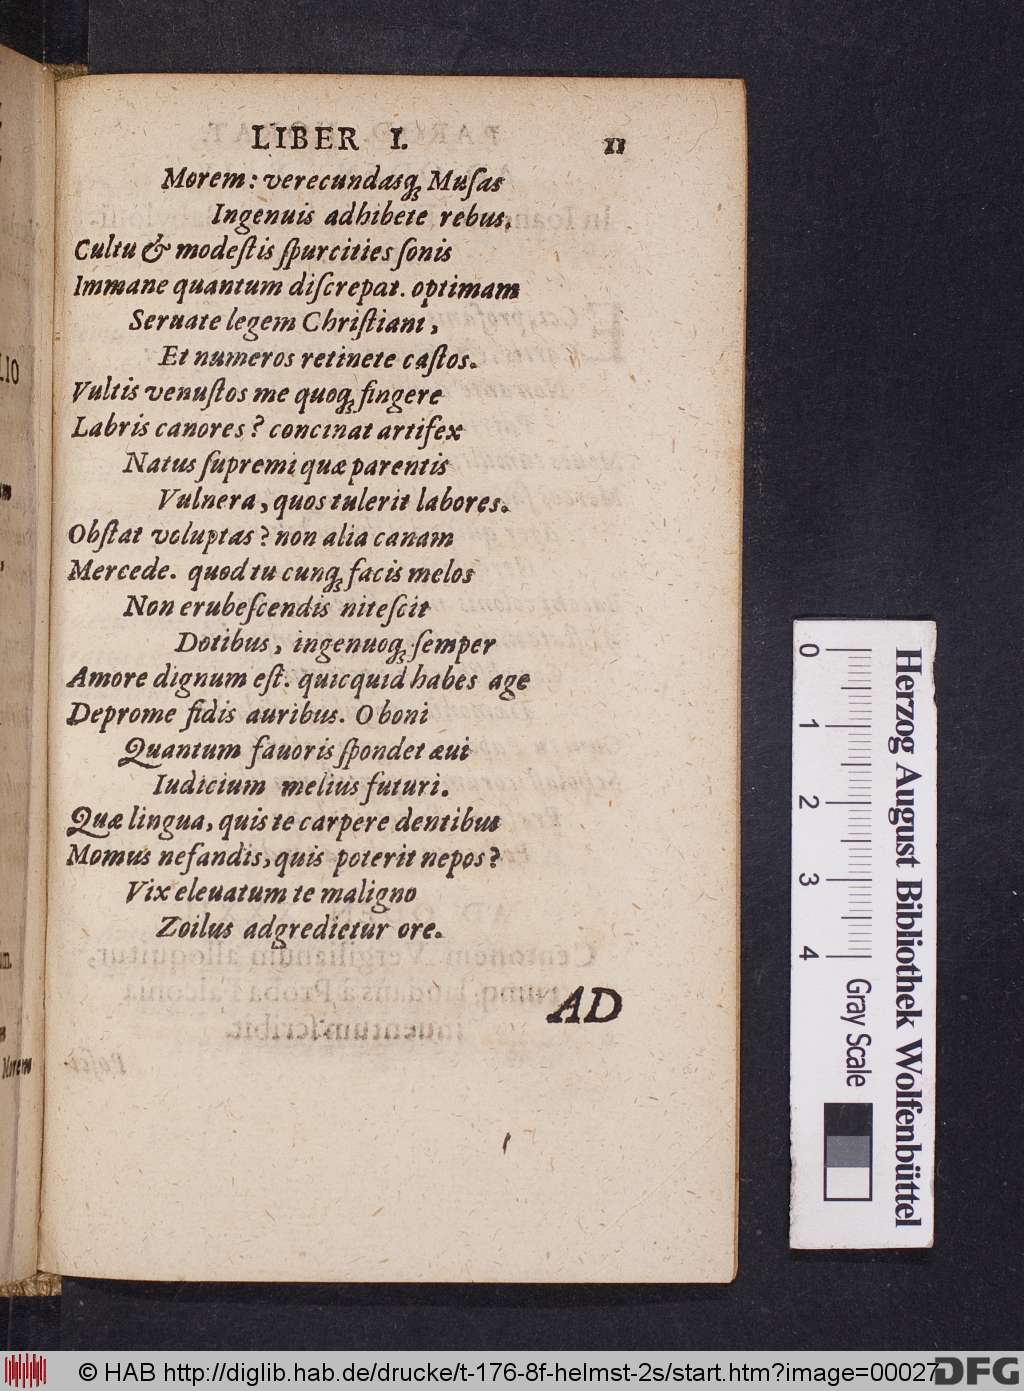 LIBER I. 11
Morem: verecundasq́ꝫ Muſas
Ingenuis adhibete rebus.
Cultu & modeſtis ſpurcities ſonis
Immane quantum diſcrepat. optimam
Seruate legem Chriſtiani,
Et numeros retinete caſtos.
Vultis venuſtos me quoqꝫ fingere
Labris canores? concinat artifex
Natus ſupremi quæ parentis
Vulnera, quos tulerit labores.
Obſtat voluptas? non alia canam
Mercede. quod tu cunqꝫ facis melos
Non erubeſcendis niteſcit
Dotibus, ingenuoqꝫ ſemper
Amore dignum eſt. quicquid habes age
Deprome fidis auribus. O boni
Quantum fauoris ſpondet æui
Iudicium melius futuri.
Quæ lingua, quis te carpere dentibus
Momus nefandis, quis poterit nepos?
Vix eleuatum te maligno
Zoilus adgredietur ore.
AD
LIO
Morem
0 1 2 3 4
Gray Scale
Herzog August Bibliothek Wolfenbüttel
© HAB http://diglib.hab.de/drucke/t-176-8f-helmst-2s/start.htm?image=00027
DFG